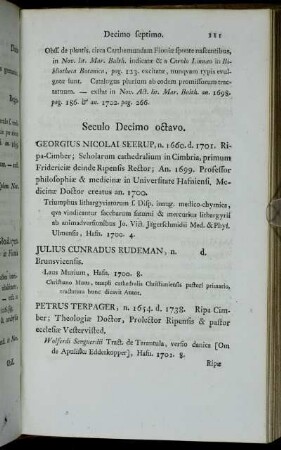 Decimo septimo. 111
Obs. de plantis, circa Carthamundam Fioniæ sponte nascentibus,
in Nov. lit. Mar. Balth. indicatæ & a Carolo Linnæo in Bi-
bliotheca Botanica, pag. 123. excitatæ, nunquam typis evul-
gatæ sunt. Catalogus plurium ab eodem promissorum trac-
tatuum — exstat in Nov. Act. lit. Mar. Balth. an. 1698.
pag. 186. & an. 1702. pag. 266.
Seculo Decimo octavo.
GEORGIUS NICOLAI SEERUP, n. 1660. d. 1701. Ri-
pa-Cimber; Scholarum cathedralium in Cimbria, primum
Fridericiæ deinde Ripensis Rector; An. 1699. Professor
philosophiæ & medicinæ in Universitate Hafniensi, Me-
dicinæ Doctor creatus an. 1700.
Triumphus lithargyriatorum s. Disp. inaug. medico-chymica,
qua vindicantur saccharum saturni & mercurius lithargyrii
ab animadversionibus Jo. Vit. Jägerschmidii Med. & Phyf.
Ulmensis, Hafn. 1700. 4.
JULIUS CUNRADUS RUDEMAN, n. d.
Brunsvicensis.
Laus Murium, Hafn. 1700. 8.
Christiano Muus, templi cathedralis Christianiensis pastori primario,
tractatum hunc dicavit Autor.
PETRUS TERPAGER, n. 1654. d. 1738. Ripa Cim-
ber; Theologiæ Doctor, Prolector Ripensis & pastor
ecclesiæ Vestervisted.
Wolferdi Senguerdii Tract. de Tarantula, verso danice [Om
de Apuliske Edderkopper], Hafn. 1702. 8.
Ripæ